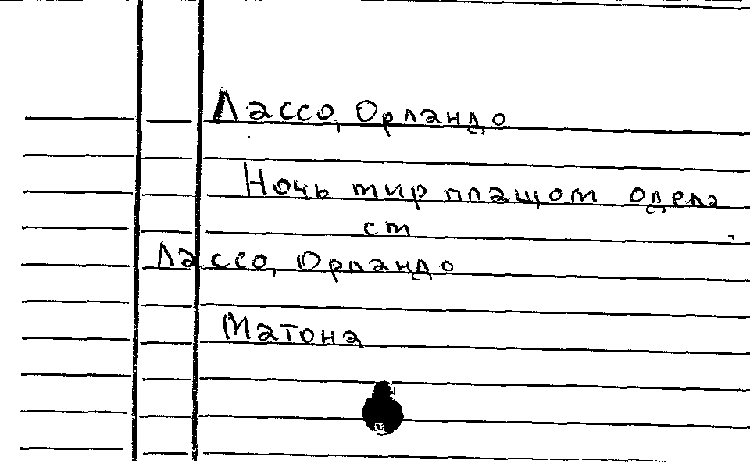 Лассо, Орландо
Ночь мир плащом одела
см
Лассо, Орландо
Матона